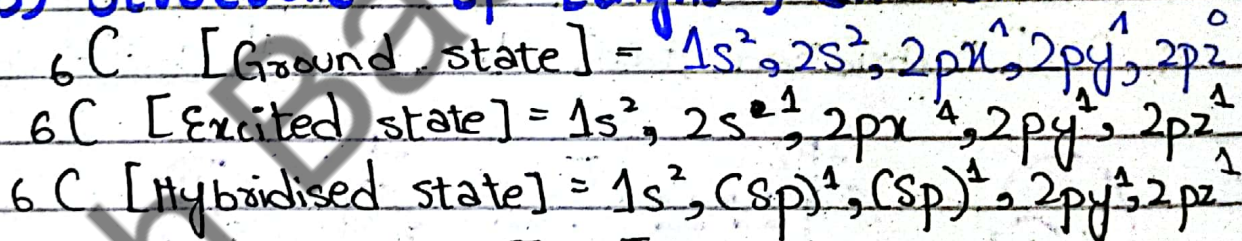 6C [Ground state] = 1s², 2s², 2px¹, 2py¹, 2pz⁰
6C [Excited state] = 1s², 2s¹, 2px¹, 2py¹, 2pz¹
6C [Hybridised state] = 1s², (Sp)¹, (Sp)¹, 2py¹, 2pz¹